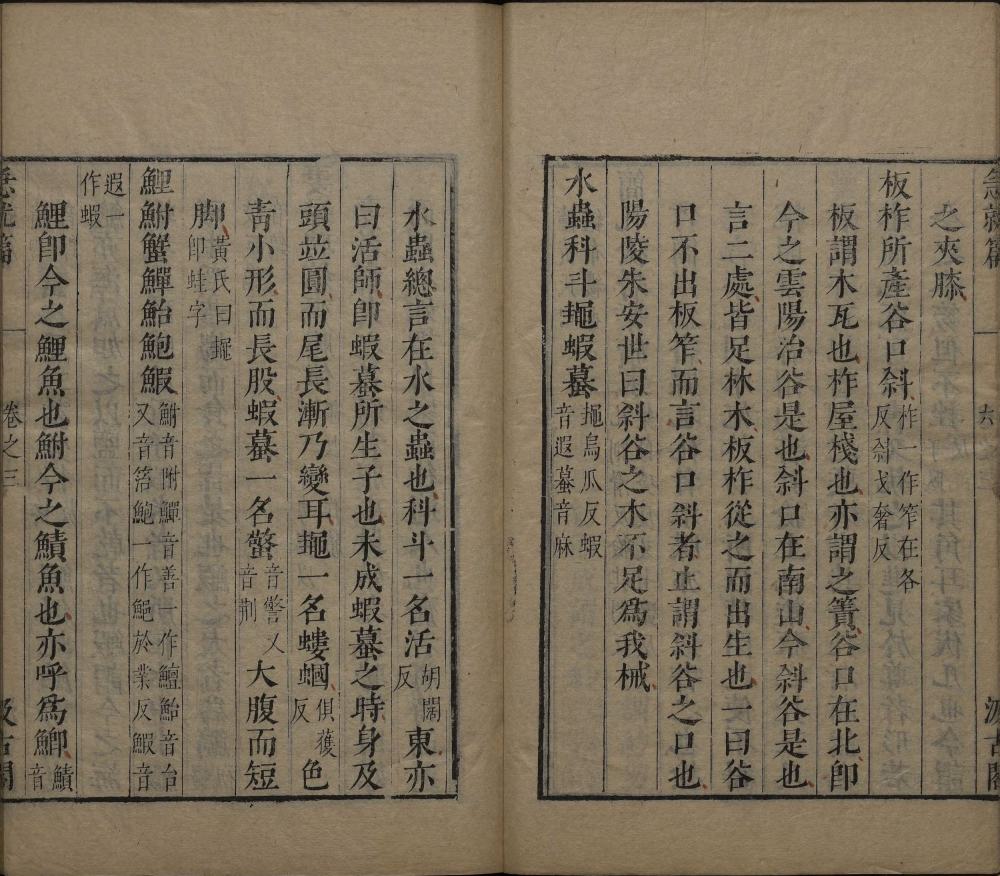 急就篇 六 汲古閣
之夾膝
板柞所產谷口斜柞一作笮在各反斜戈奢反
板謂木瓦也柞屋棧也亦謂之簀谷口在北卽
今之雲陽治谷是也斜口在南山今斜谷是也
言二處皆足林木板柞從之而出生也一曰谷
口不出板笮而言谷口斜者止謂斜谷之口也
陽陵朱安世曰斜谷之木不足爲我械
水蟲科斗䵷蝦蟇䵷烏瓜反蝦音遐蟇音麻
水蟲總言在水之蟲也科斗一名活胡闊反東亦
曰活師卽蝦蟇所生子也未成蝦蟇之時身及
頭並圓而尾長漸乃變耳䵷一名螻蟈俱獲反色
靑小形而長股蝦蟇一名螫音警又音荆大腹而短
脚黃氏曰䵷卽蛙字
鯉鮒蟹鱓鮐鮑鰕鮒音附鱓音善一作鱣鮐音台又音笞鮑一作鮿於業反鰕音
遐一作蝦
鯉卽今之鯉魚也鮒今之鯽魚也亦呼爲鯽鯽音
急就篇 卷之三 汲古閣